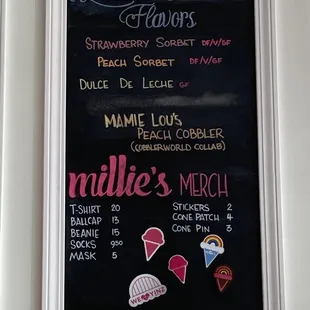 Flavors
Strawberry Sorbet DF/V/GF
Peach Sorbet DF/V/GF
Dulce De Leche GF
Mamie Lou's
Peach Cobbler
(Cobblerworld Collab)
millie's MERCH
T-SHIRT 20
BALLCAP 13
BEANIE 15
SOCKS 9.50
MASK 5
STICKERS 2
CONE PATCH 4
CONE PIN 3
WE YINZ